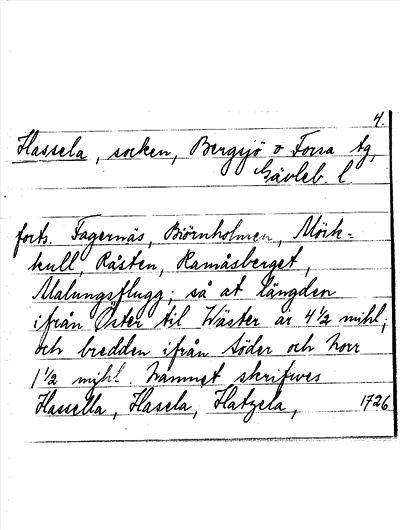 4.
Hassela, socken, Bergsjö o Forsa tg,
Gävleb. l.
forts. Fagernäs, Biörnholmen, Mörk-
kull, Råsten, Ramåsberget,
Malungsflugg; så at längden
ifrån Öster til Wäster är 4 1/2 mihl,
och bredden ifrån Söder och Norr
1 1/2 mihl. Namnet skrifwes
Hassella, Hasela, Hatzela, 1726